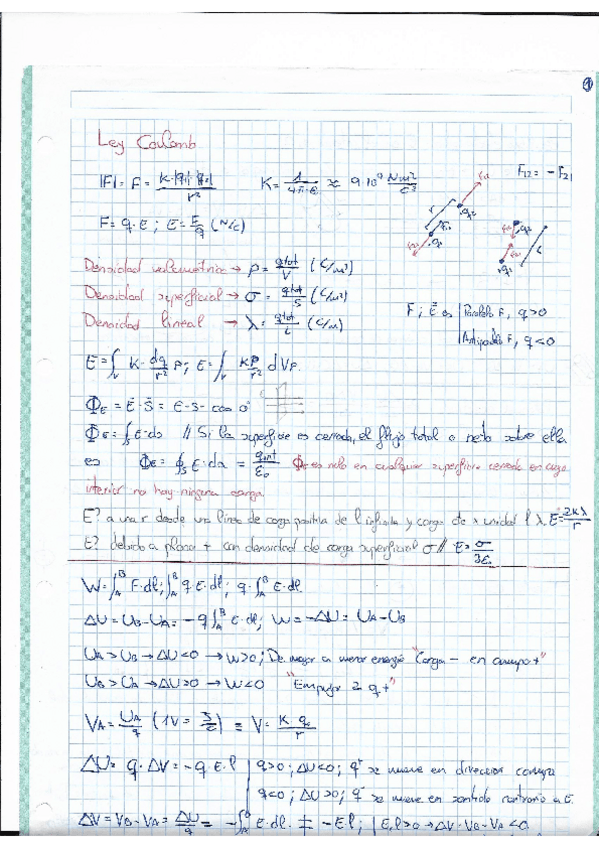 Ley Coulomb
|F| = F = K·|q1|·|q2| / r² K = 1 / 4π·ε ≈ 9·10⁹ Nm² / C²
F12 = -F21
F = q·E ; E = F/q (N/C)
Densidad volumétrica → ρ = qtot / V (C/m³)
Densidad superficial → σ = qtot / S (C/m²)
Densidad lineal → λ = qtot / L (C/m)
F ; E es | Paralela F, q>0
| Antiparalela F, q<0
E = ∫v K· dq/r² r ; E = ∫v Kρ/r² dVr.
ΦE = E·S = E·S·cos θ
ΦE = ∫s E·ds // Si la superficie es cerrada, el flujo total o neto sobre ella
es ΦE = ∮s E·da = qint / ε0 ΦE es nulo en cualquier superficie cerrada en cuyo
interior no hay ninguna carga
E? a una r desde una línea de carga positiva de l infinita y carga de x unidad l λ E = 2Kλ / r
E? debido a plano + con densidad de carga superficial σ // E = σ
W = ∫A^B F·dl ; ∫A^B q E·dl ; q·∫A^B E·dl
ΔU = UB - UA = -q ∫A^B E·dl ; W = -ΔU = UA - UB
UA > UB → ΔU < 0 → W>0 ; De mayor a menor energía "Carga - en campo +"
UB > UA → ΔU>0 → W<0 "Empujar 2 q+"
VA = UA/q (1V = J/C) ≡ V = K·q / r
ΔU = q·ΔV = -q E·l | q>0 ; ΔU<0 ; q+ se mueve en dirección
q<0 ; ΔU>0 ; q+ se mueve en sentido contrario a E.
ΔV = VB - VA = ΔU/q = -∫A^B E·dl = -E·l ; | E·l>0 → ΔV = VB - VA <0